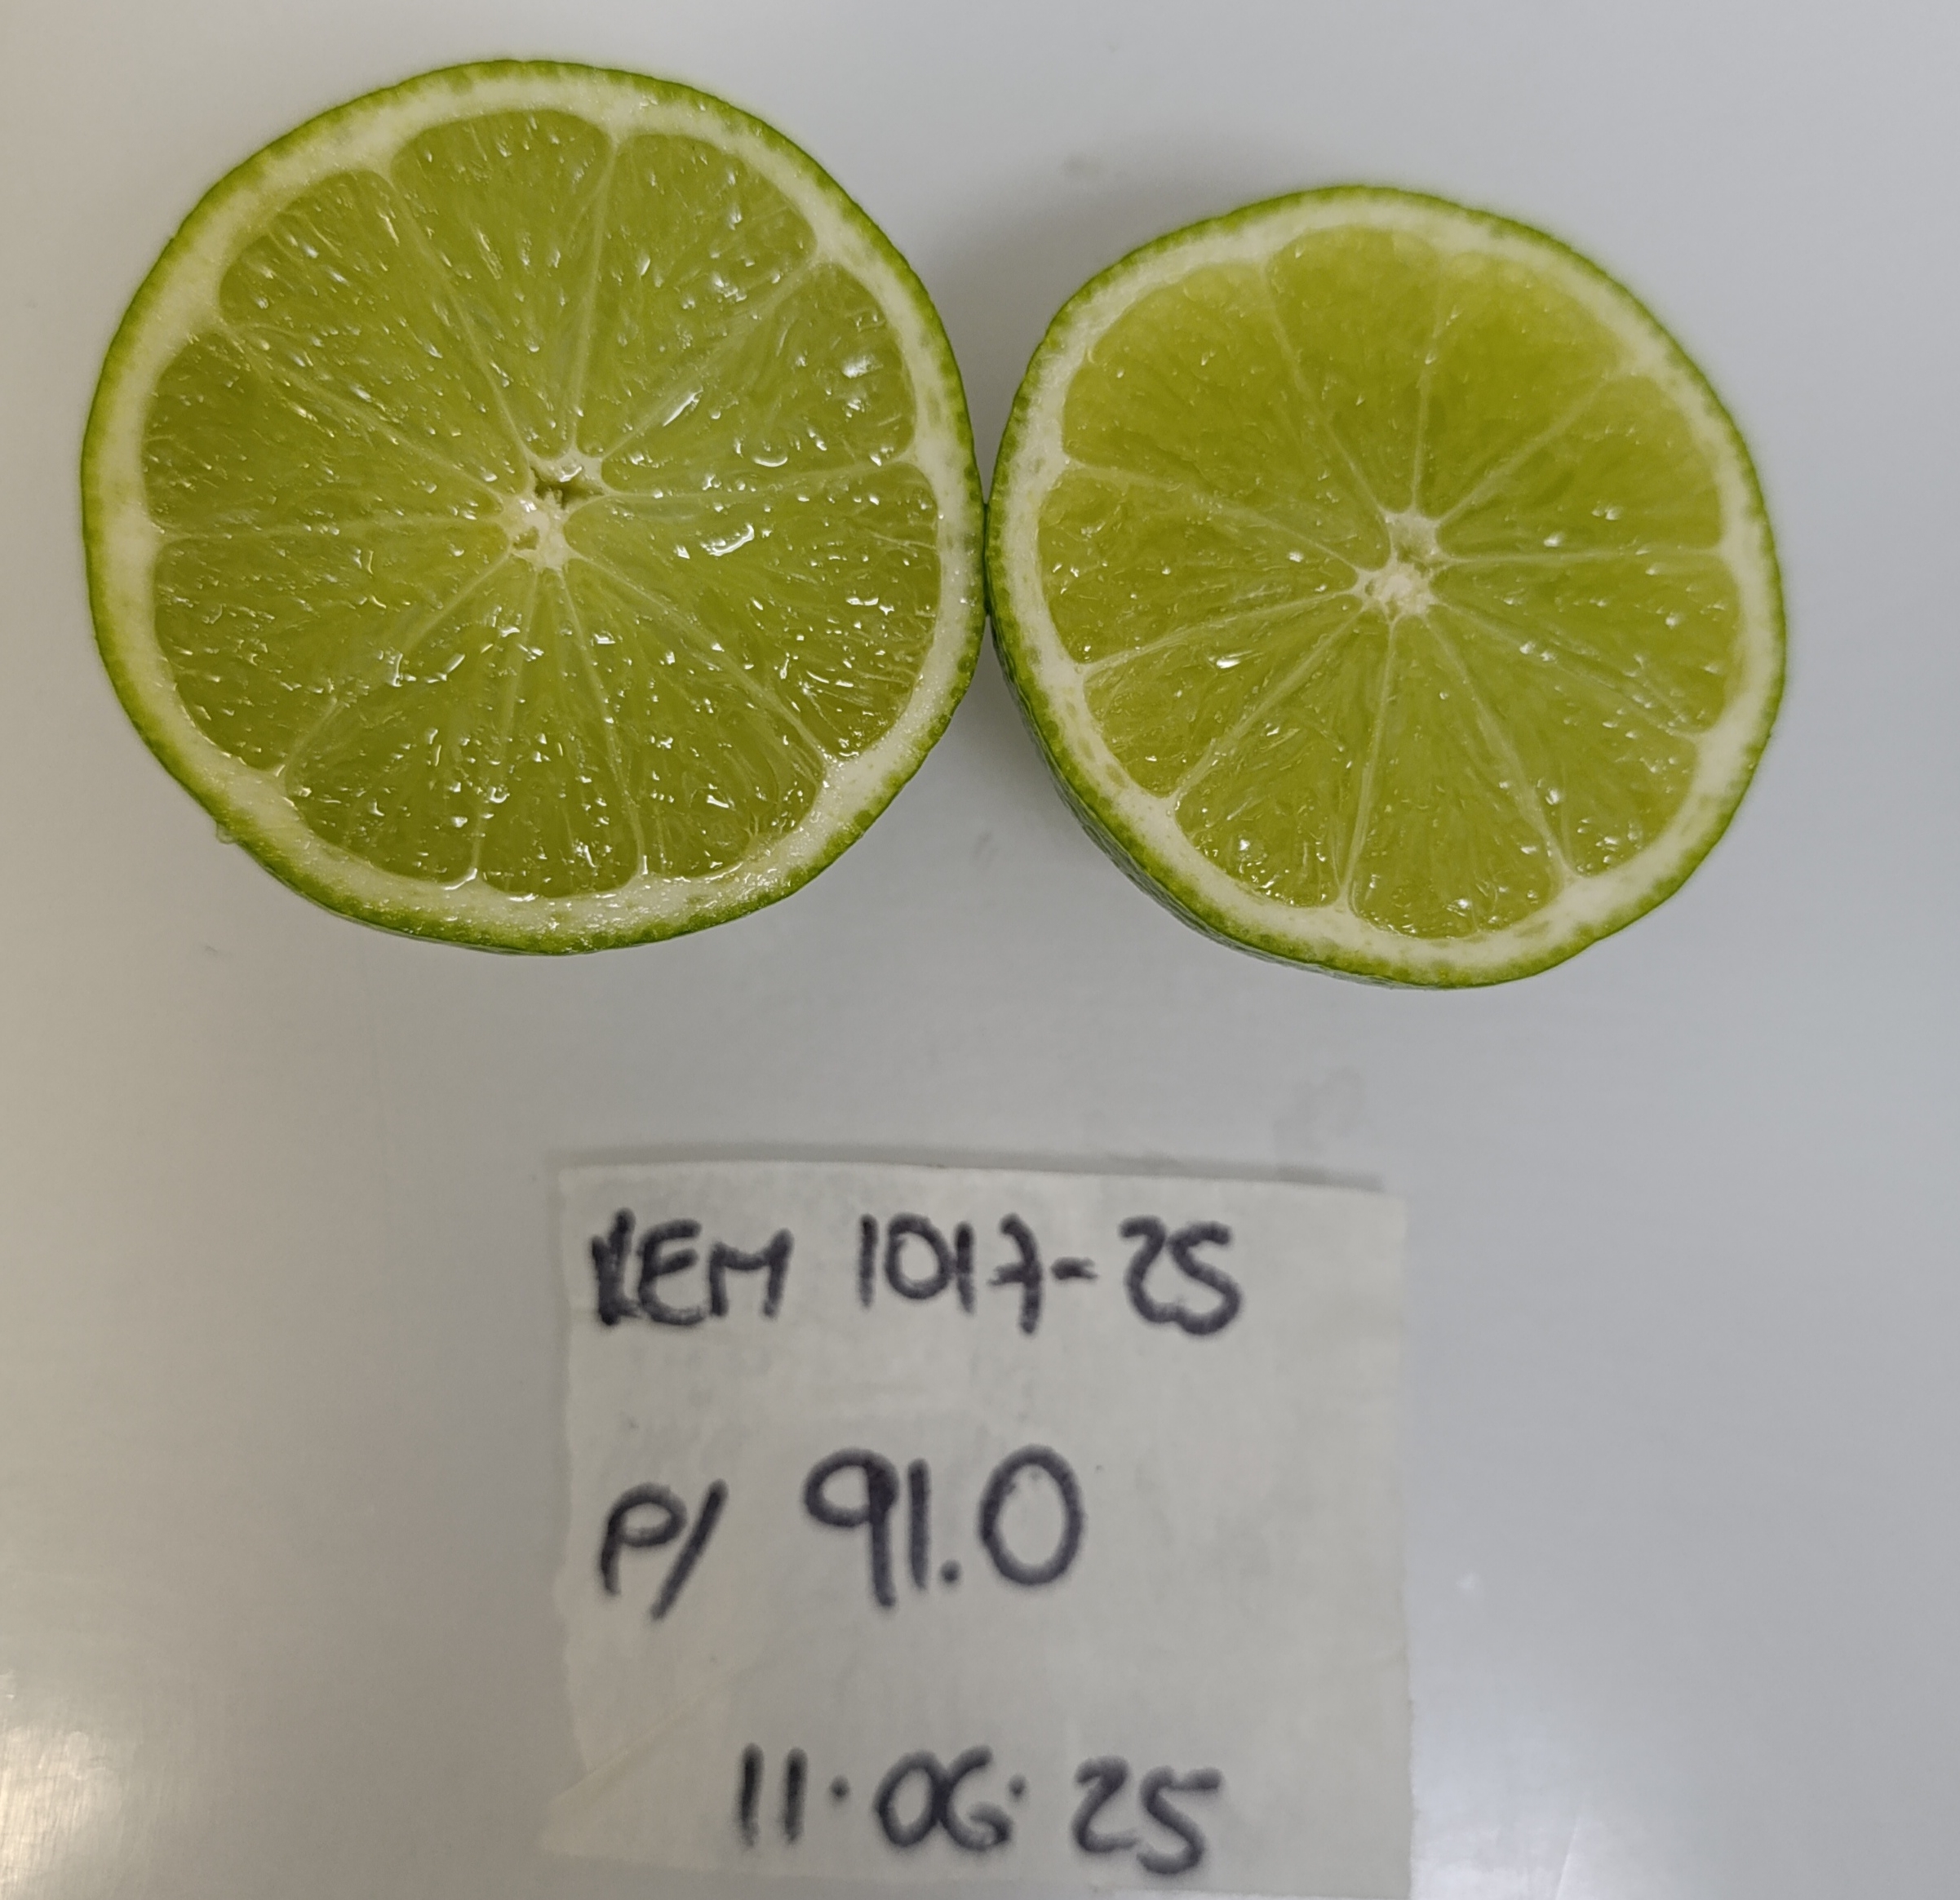 KEM 1017-25
P/ 91.0
11.06.25